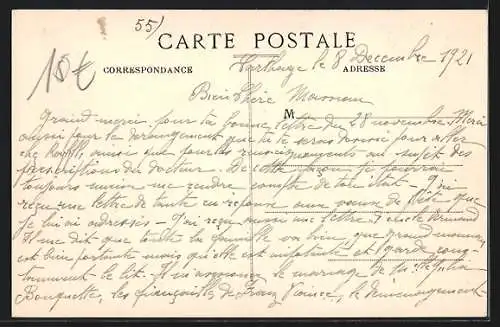 55)
CARTE POSTALE
10€
Carthage le 8 Decembre 1921
CORRESPONDANCE
ADRESSE
Bien Chère Maman
M
Grand merci pour ta bonne lettre du 28 novembre. Merci
aussi pour le derangement que tu te seras donné pour aller
chez ainsi que pour les renseignements au sujet des
prescriptions du docteur. De cette façon je pourrai
toujours mieux me rendre compte de ton état - J'ai
reçu une lettre de tante en reponse aux voeux de fête que
je lui ai adressés - J'ai reçu aussi une lettre
Il me dit que toute la famille va bien, que grand maman
est bien portante mais qu'elle est et garde cons-
tamment le lit. Il m'annonce le mariage de
Bouquette, les fiançailles de le demenagement